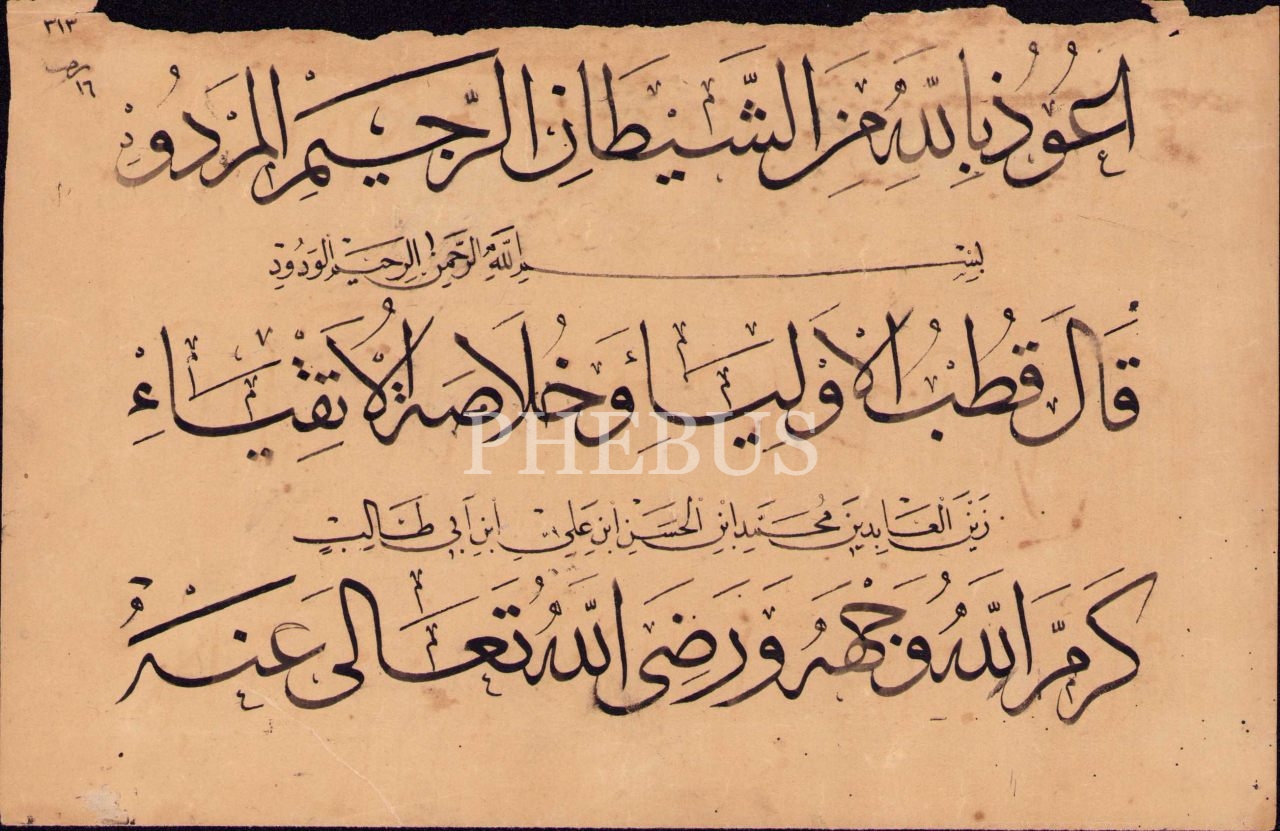 ٣١٣
١٦
اَعُوذُ بِاللّٰهِ مِنَ الشَّيْطَانِ الرَّجيمِ المَرْدُودِ
بِسْمِ اللّٰهِ الرَّحْمٰنِ الرَّحيمِ الوَدُودِ
قَالَ قُطْبُ الْاَوْلِيَاءِ وَخُلَاصَةُ الْاَتْقِيَاءِ
زَيْنَ الْعَابِدِينَ مُحَمَّدِ ابْنِ الْحَسَنِ ابْنِ عَلِيِّ ابْنِ اَبِي طَالِبٍ
كَرَّمَ اللّٰهُ وَجْهَهُ وَرَضِىَ اللّٰهُ تَعَالىٰ عَنْهُ
PHEBUS